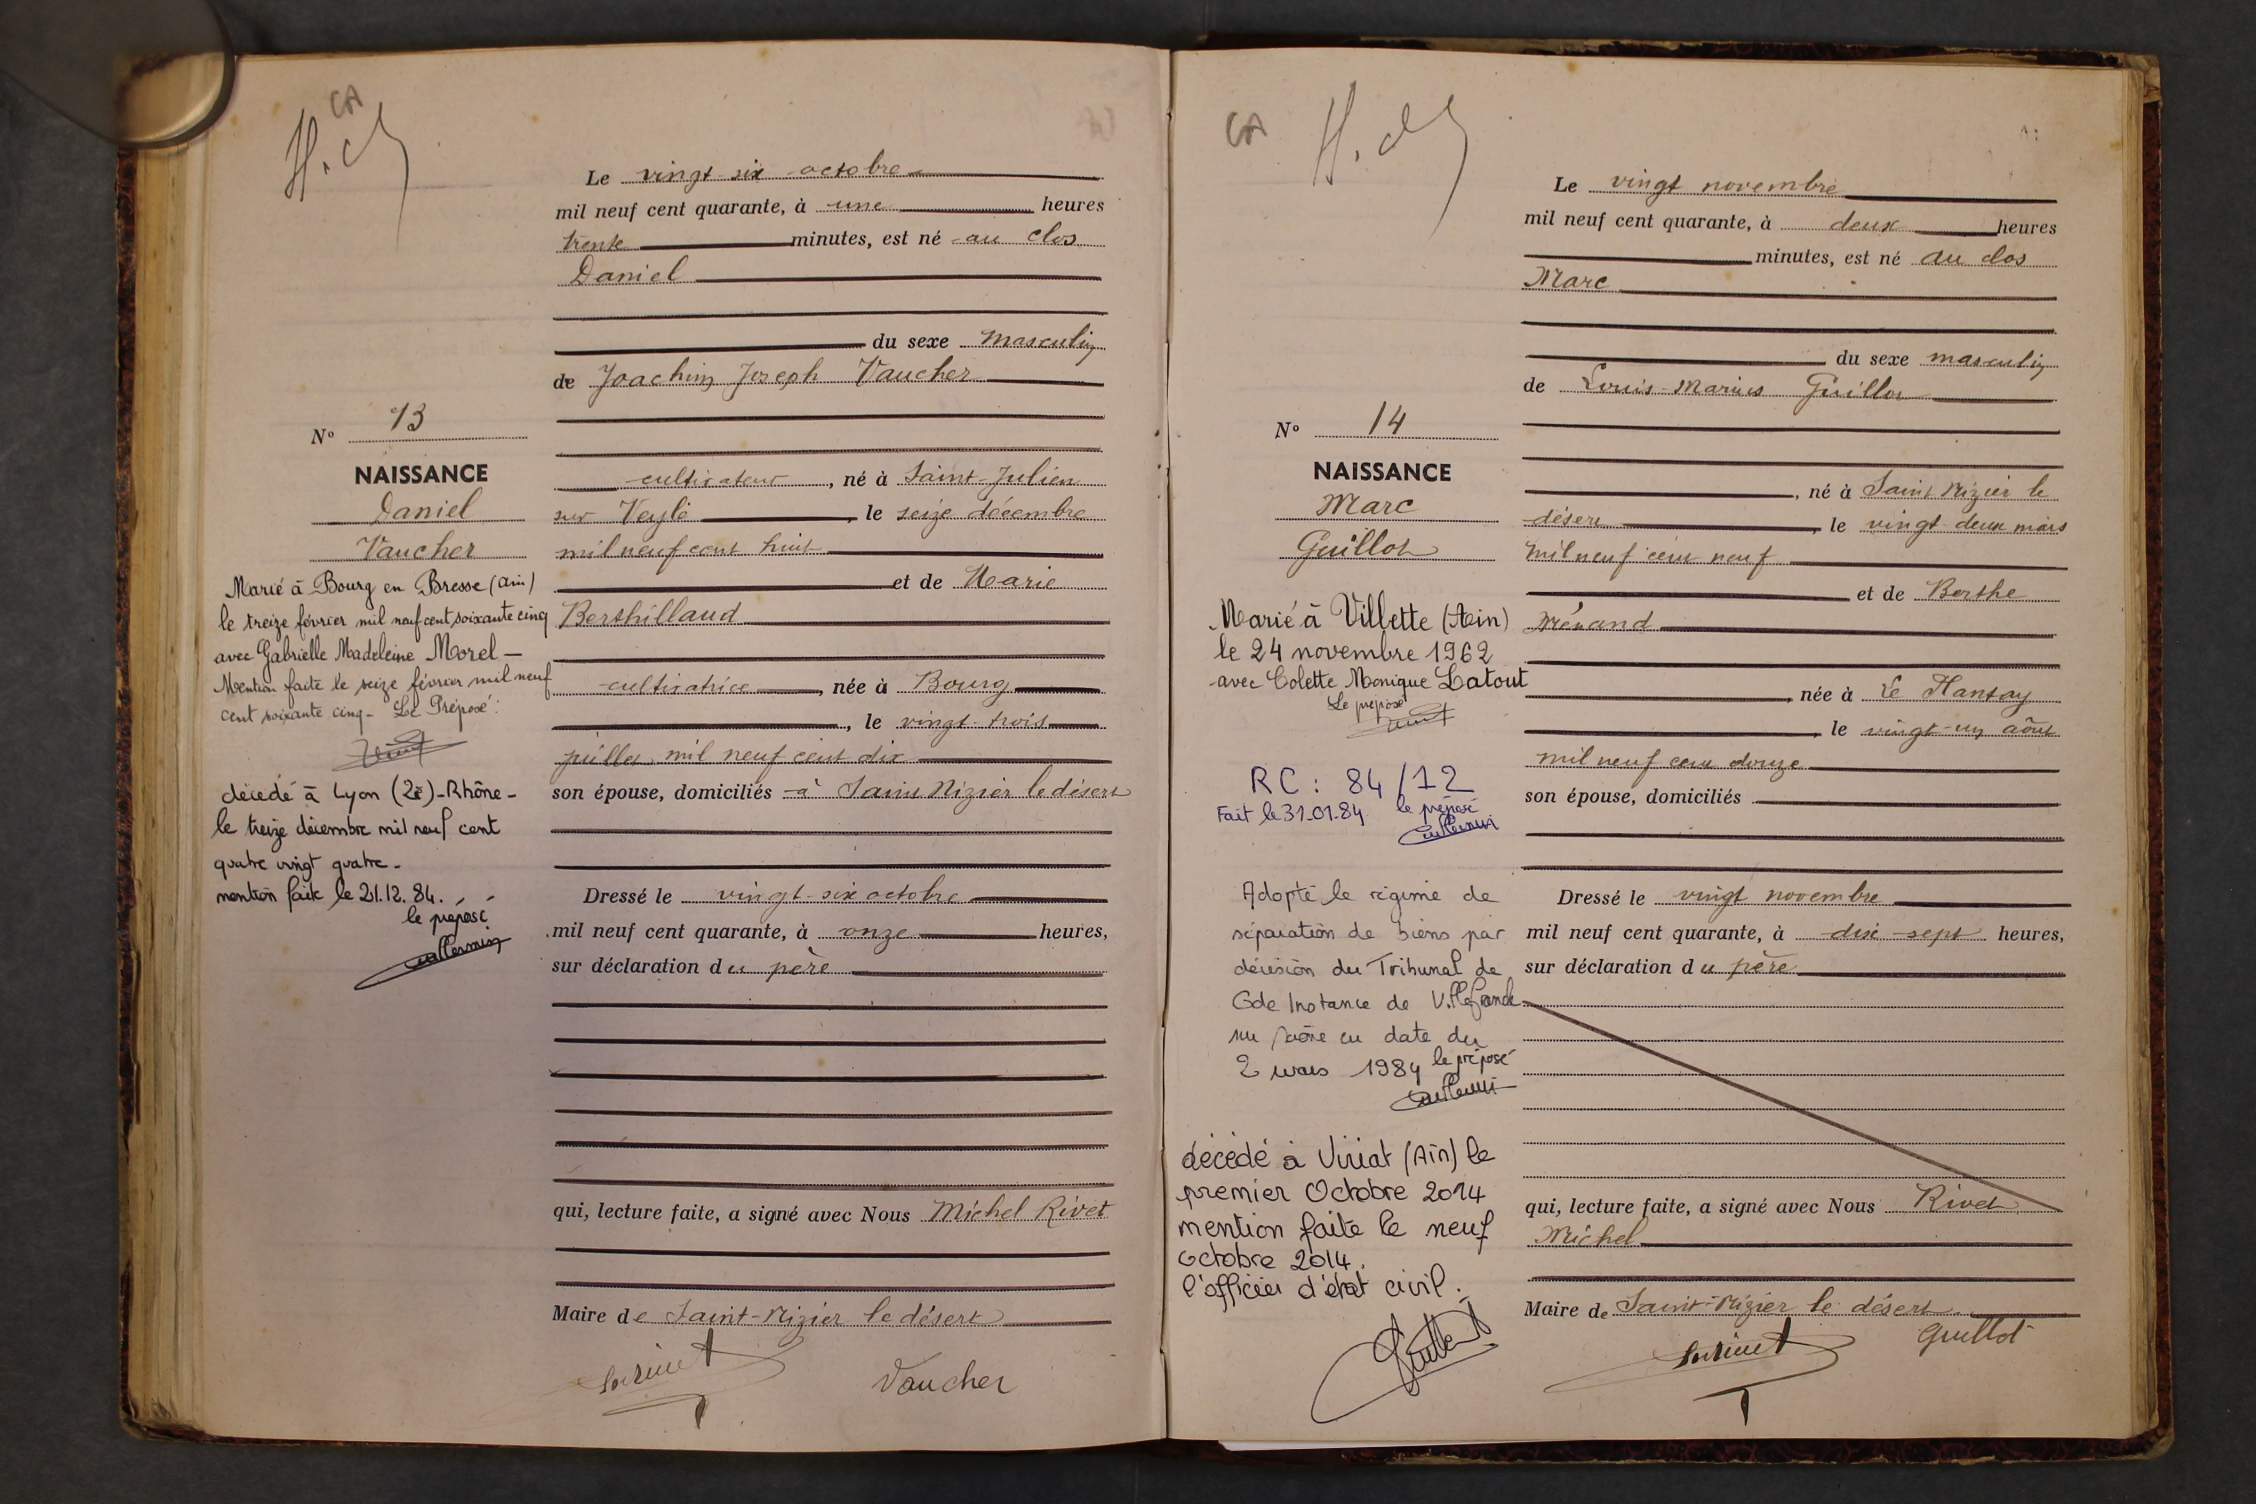 CA
H. d
Le vingt-six octobre
mil neuf cent quarante, à une heures
trente minutes, est né au clos
Daniel
du sexe masculin
de Joachim Joseph Vaucher
N° 13
NAISSANCE
Daniel
Vaucher
cultivateur, né à Saint-Julien
sur Veyle, le seize décembre
mil neuf cent huit
et de Marie
Berthillaud
cultivatrice, née à Bourg
, le vingt-trois
juillet mil neuf cent dix
son épouse, domiciliés à Saint Nizier le désert
Dressé le vingt-six octobre
mil neuf cent quarante, à onze heures,
sur déclaration du père
qui, lecture faite, a signé avec Nous Michel Rivet
Maire de Saint-Nizier le désert
Vaucher
Marié à Bourg en Bresse (Ain)
le treize février mil neuf cent soixante cinq
avec Gabrielle Madeleine Morel –
Mention faite le seize février mil neuf
cent soixante cinq – Le Préposé :
décédé à Lyon (2è) – Rhône –
le treize décembre mil neuf cent
quatre vingt quatre –
mention faite le 21.12.84.
le préposé
CA
H. d
Le vingt novembre
mil neuf cent quarante, à deux heures
minutes, est né au clos
Marc
du sexe masculin
de Louis-Marius Guillot
N° 14
NAISSANCE
Marc
Guillot
, né à Saint Nizier le
désert, le vingt-deux mars
mil neuf cent neuf
et de Berthe
, née à Le Plantay
, le vingt-un août
mil neuf cent douze
son épouse, domiciliés
Dressé le vingt novembre
mil neuf cent quarante, à dix-sept heures,
sur déclaration du père
qui, lecture faite, a signé avec Nous Rivet
Michel
Maire de Saint-Nizier le désert
Guillot
Marié à Villette (Ain)
le 24 novembre 1962
avec Colette Monique Latout
Le préposé
RC : 84/12
Fait le 31.01.84 le préposé
Adopté le régime de
séparation de biens par
décision du Tribunal de
Gde Instance de Villefranche
sur Saône en date du
2 mars 1984 le préposé
décédé à Viriat (Ain) le
premier Octobre 2014
mention faite le neuf
octobre 2014.
l'officier d'état civil.